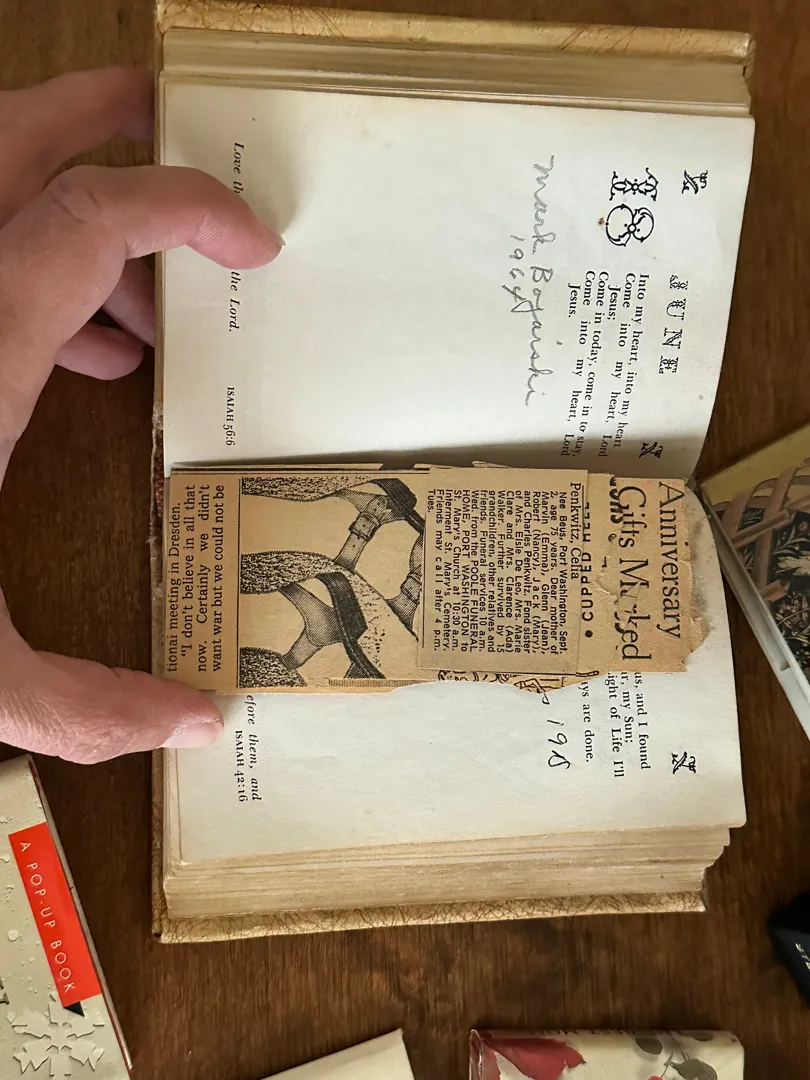 JUNE
18
Into my heart, into my heart
Come into my heart, Lord
Jesus;
Come in today, come in to stay,
Come into my heart, Lord
Jesus.
Mark Bojarski
1964
Love th
the Lord.
ISAIAH 56:6
us, and I found
r, my Sun;
ight of Life I'll
ys are done.
efore them, and
ISAIAH 42:16
Anniversary
Gifts M ked
CUPPED HEEL
Penkwitz, Celia
Nee Beug. Port Washington, Sept.
2, age 75 years. Dear mother of
Marvin (Emma), Glenn (Jean),
Robert (Nancy), Jack (Mary),
and Charles Penkwitz. Fond sister
of Mrs. Elsie De Leo, Mrs. Marie
Clare and Mrs. Clarence (Ada)
Walker. Further survived by 15
grandchildren, other relatives and
friends. Funeral services 10 a.m.
Wed. from the POOLE FUNERAL
HOME, PORT WASHINGTON to
St. Mary's Church at 10:30 a.m.
Interment St. Mary's Cemetery.
Friends may call after 4 p.m.
Tues.
tional meeting in Dresden.
"I don't believe in all that
now. Certainly we didn't
want war but we could not be
A POP-UP BOOK